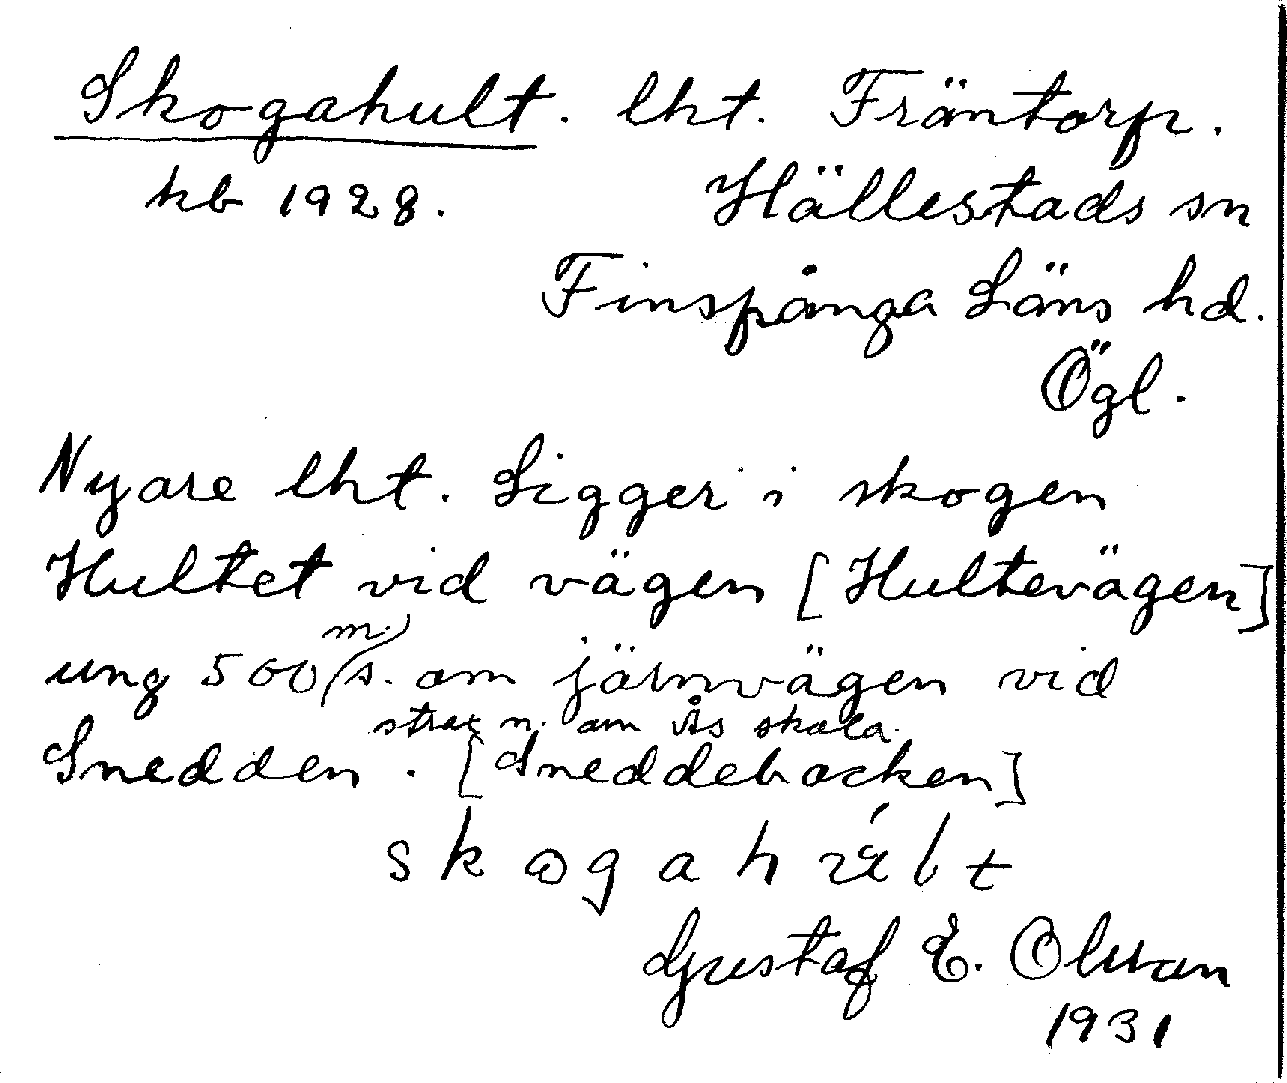 Skogahult. lht. Fräntorp.
kb 1928. Hällestads sn
Finspånga Läns hd.
Ögl.
Nyare lht. Ligger i skogen
Hultet vid vägen [Hultevägen]
ung 500 m. s. om järnvägen vid
strax n. om skala.
Snedden. [Sneddebacken]
Gustaf E. Olsson
1931